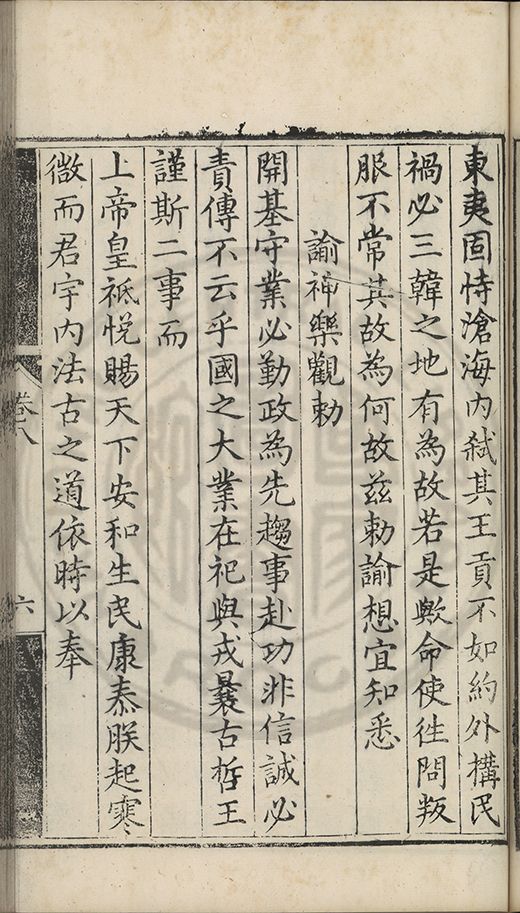 東夷固恃滄海內弒其王貢不如約外搆民
禍必三韓之地有為故若是歟命使徃問叛
服不常其故為何故茲勅諭想宜知悉
諭神樂觀勅
開基守業必勤政為先趨事赴功非信誠必
責傳不云乎國之大業在祀與戎曩古哲王
謹斯二事而
上帝皇祇悅賜天下安和生民康泰朕起寒
微而君宇內法古之道依時以奉
卷八
六